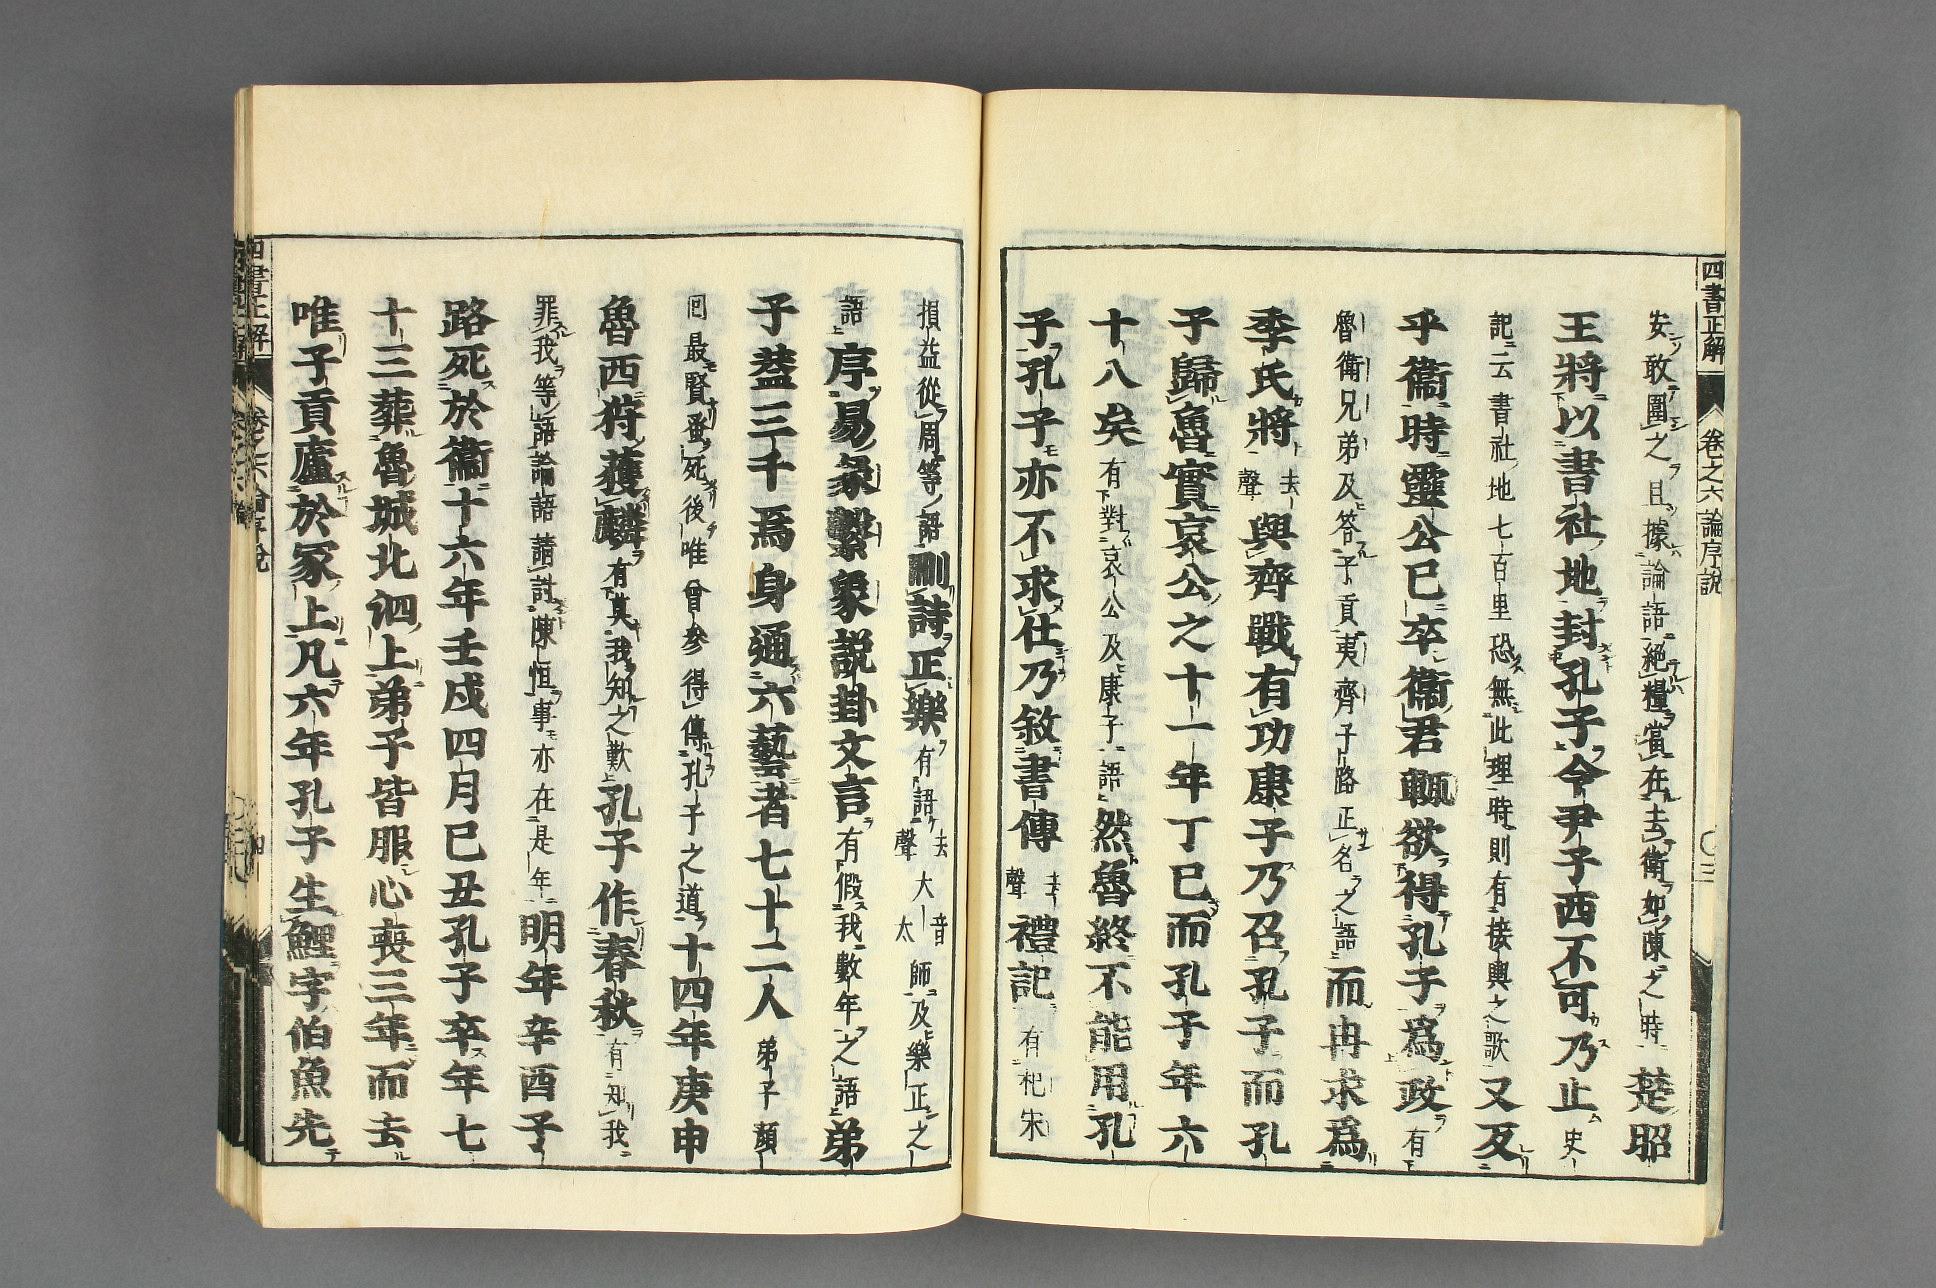 四書正解 卷之六 論序說
安敢圍之且據論語絕糧當在去衛如陳之時楚昭
王將以書社地封孔子令尹子西不可乃止史
記云書社地七百里恐無此理時則有接輿之歌又反
乎衞時靈公已卒衞君輙欲得孔子爲政有
魯衛兄弟及答子貢夷齊子路正名之語而冉求爲
季氏將去聲與齊戰有功康子乃召孔子而孔
子歸魯實哀公之十一年丁巳而孔子年六
十八矣有對哀公及康子語然魯終不能用孔
子孔子亦不求仕乃敘書傳去聲禮記有杞宋
損益從周等語刪詩正樂有語去聲大音太師及樂正之
語序易彖繫象說卦文言有假我數年之語弟
子蓋三千焉身通六藝者七十二人弟子顏
回最賢蚤死後唯曾參得傳孔子之道十四年庚申
魯西狩獲麟有莫我知之歎孔子作春秋有知我
罪我等語論語請討陳恒事亦在是年明年辛酉子
路死於衞十六年壬戌四月己丑孔子卒年七
十三葬魯城北泗上弟子皆服心喪三年而去
唯子貢廬於冢上凡六年孔子生鯉字伯魚先